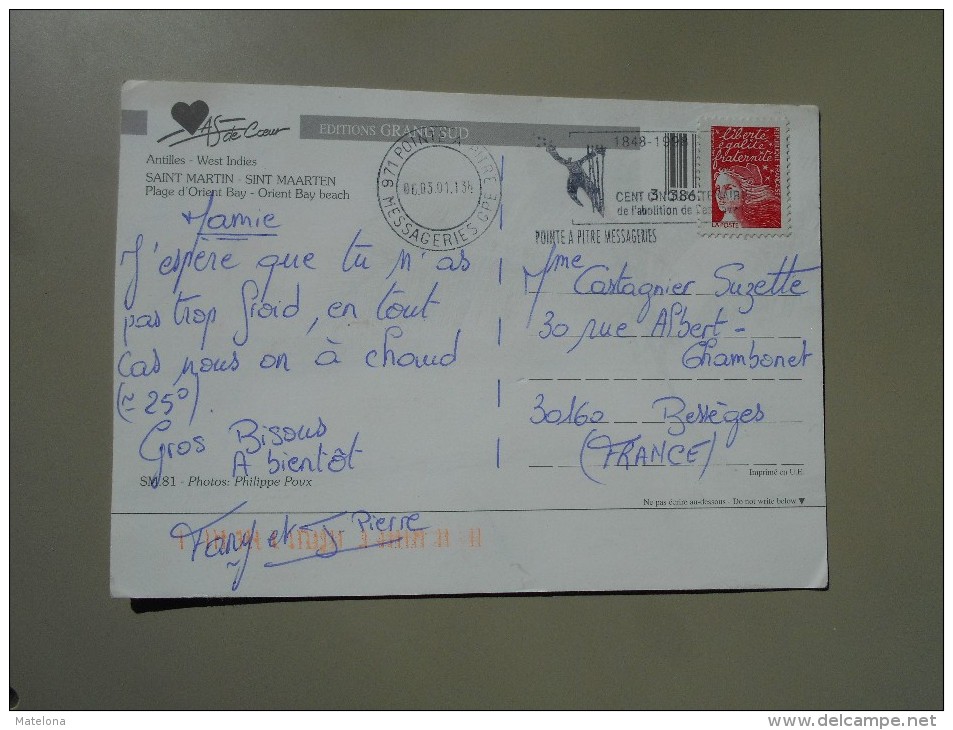 As de Cœur
EDITIONS GRAND SUD
Antilles - West Indies
SAINT MARTIN - SINT MAARTEN
Plage d'Orient Bay - Orient Bay beach
971 POINTE A PITRE
MESSAGERIES CPE
1848-1998
3 386
CENT CINQUANTENAIRE
de l'abolition de l'es
POINTE A PITRE MESSAGERIES
liberté
égalité
fraternité
RF
LA POSTE
Mamie
J'espère que tu n'as
pas trop froid, en tout
cas nous on à chaud
(≃ 25°).
Gros Bisous
A bientôt
Fany et J Pierre
Mme Castagnier Suzette
30 rue Albert -
Chambonet
30160 Bessèges
(FRANCE)
Imprimé en U.E.
SM 81 - Photos: Philippe Poux
Ne pas écrire au-dessous - Do not write below ▼
Matelona
www.delcampe.net